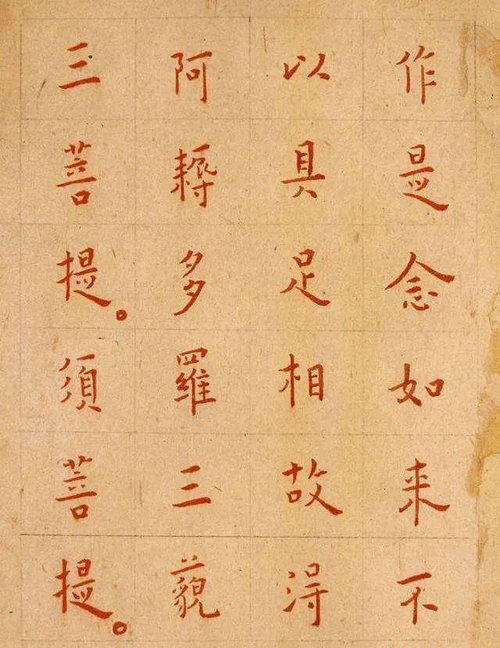 作是念如来不
以具足相故得
阿耨多羅三藐
三菩提。須
菩提。